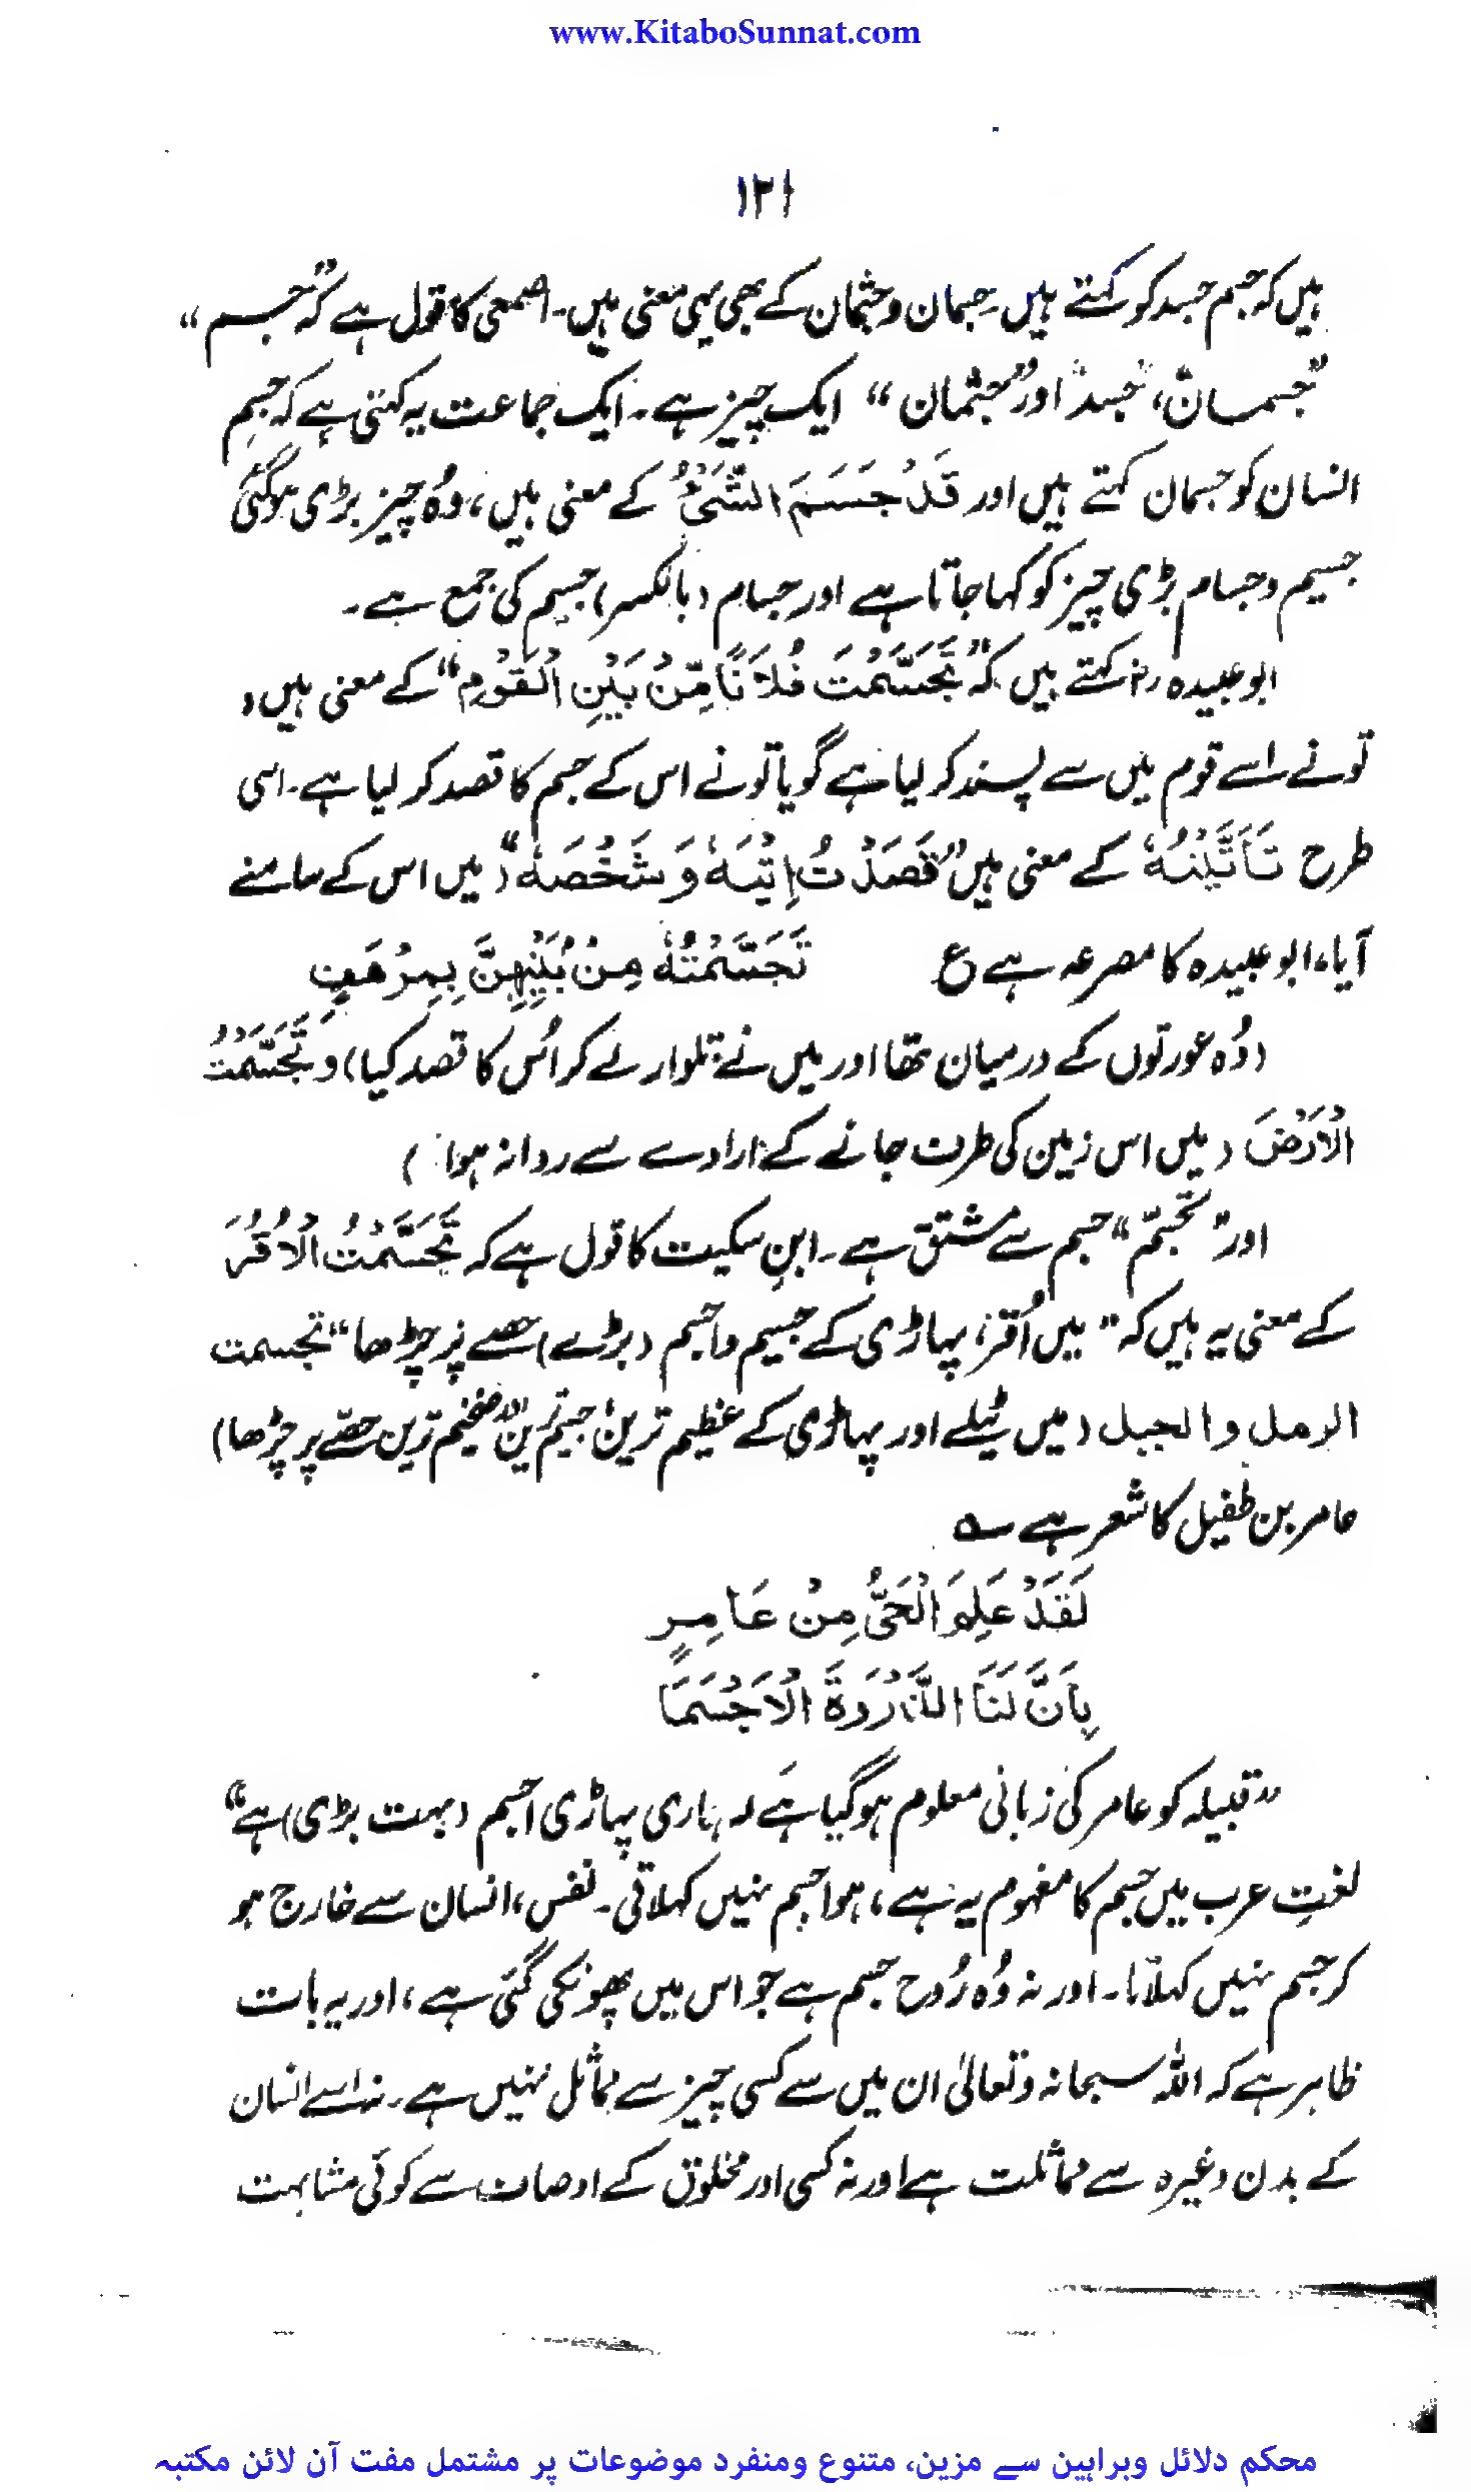 www.KitaboSunnat.com
۱۲۱
ہیں کہ جسم جسد کو کہتے ہیں۔ جسمان و جثمان کے بھی یہی معنی ہیں۔ اصمعی کا قول ہے کہ ”جسم“
”جسمان“، ”جسد“ اور ”جثمان“ ایک چیز ہے۔ ایک جماعت یہ کہتی ہے کہ جسمِ
انسان کو جسمان کہتے ہیں اور قَدْ جَسَمَ الشَّیْءُ کے معنی ہیں، وُہ چیز بڑی ہوگئی
جسیم و جسام بڑی چیز کو کہا جاتا ہے اور جسام (بالکسر) جسیم کی جمع ہے۔
ابو عبیدہ رہ کہتے ہیں کہ ”تَجَسَّمْتَ فُلَانًا مِّنْ بَیْنِ الْقَوْمِ“ کے معنی ہیں،
تو نے اسے قوم میں سے پسند کر لیا ہے گویا تو نے اس کے جسم کا قصد کر لیا ہے۔ اسی
طرح تَأَتَّیْتُہٗ کے معنی ہیں ”قَصَدْتُ اِتْیَہٗ وَ شَخْصَہٗ“ (میں اس کے سامنے
آیا، ابو عبیدہ کا مصرعہ ہے ع تَجَسَّمْتُہٗ مِنْ بَیْنِہِنَّ بِمِرْھَفٍ
(وُہ عورتوں کے درمیان تھا اور میں نے تلوار لے کر اُس کا قصد کیا) و تَجَسَّمْتُ
الْاَرْضَ (میں اس زمین کی طرف جانے کے ارادے سے روانہ ہوا)
اور ”تجسّم“ جسم سے مشتق ہے۔ ابنِ سکیت کا قول ہے کہ تَجَسَّمْتُ الْاُقُرَ
کے معنی یہ ہیں کہ ”میں اُقر، پہاڑی کے جسیم و اجسم (بڑے) حصے پر چڑھا“ تجسمت
الرمل والجبل (میں ٹیلے اور پہاڑی کے عظیم ترین، جسیم ترین اور ضخیم ترین حصّے پر چڑھا)
عامر بن طفیل کا شعر ہے ؎
لَقَدْ عَلِمَ الْحَیُّ مِنْ عَامِرٍ
بِاَنَّ لَنَا الذَّرْوَۃَ الْاَجْسَمَا
”قبیلہ کو عامر کی زبانی معلوم ہوگیا ہے کہ ہماری پہاڑی اجسم (بہت بڑی) ہے“
لغتِ عرب میں جسم کا مفہوم یہ ہے، ہوا جسم نہیں کہلاتی۔ نفس، انسان سے خارج ہو
کر جسم نہیں کہلاتا۔ اور نہ وُہ رُوح جسم ہے جو اس میں پھونکی گئی ہے، اور یہ بات
ظاہر ہے کہ اللہ سبحانہ وتعالیٰ ان میں سے کسی چیز سے مماثل نہیں ہے۔ نہ اسے انسان
کے بدن وغیرہ سے مماثلت ہے اور نہ کسی اور مخلوق کے اوصاف سے کوئی مشابہت
محکم دلائل وبراہین سے مزین، متنوع ومنفرد موضوعات پر مشتمل مفت آن لائن مکتبہ